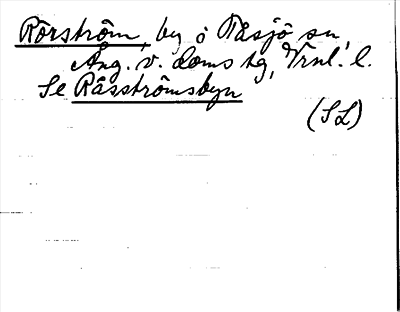 Rörström, by i Tåsjö sn,
Ång. v. doms tg, Vrnl. l.
Se Råsströmsbyn
(SL)